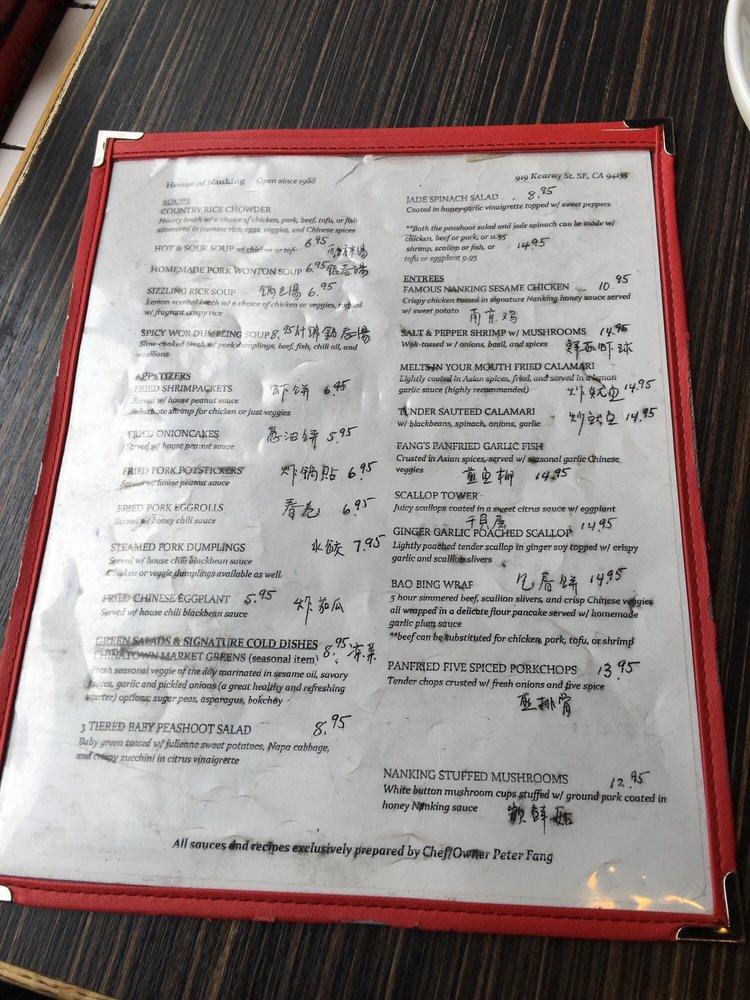 House of Nanking Open since 1988
919 Kearny St. SF, CA 94133
SOUPS
COUNTRY RICE CHOWDER
Hearty broth w/ a choice of chicken, pork, beef, tofu, or fish
simmered in jasmine rice, eggs, veggies, and Chinese spices
HOT & SOUR SOUP w/ chicken or tofu 6.95 酸辣湯
HOMEMADE PORK WONTON SOUP 6.95 雲吞湯
SIZZLING RICE SOUP 鍋巴湯 6.95
Lemon scented broth w/ a choice of chicken or veggies, topped
w/ fragrant crispy rice
SPICY WOR DUMPLING SOUP 8.95 什锦
Slow-cooked broth w/ pork dumplings, beef, fish, chili oil, and
scallions
APPETIZERS
FRIED SHRIMPACKETS 虾饼 6.95
Served w/ house peanut sauce
Substitute shrimp for chicken or just veggies
FRIED ONIONCAKES 葱油饼 5.95
Served w/ house peanut sauce
FRIED PORK POTSTICKERS 炸锅貼 6.95
Served w/ house peanut sauce
FRIED PORK EGGROLLS 春卷 6.95
Served w/ honey chili sauce
STEAMED PORK DUMPLINGS 水餃 7.95
Served w/ house chili blackbean sauce
Chicken or veggie dumplings available as well
FRIED CHINESE EGGPLANT 5.95 炸茄瓜
Served w/ house chili blackbean sauce
GREEN SALADS & SIGNATURE COLD DISHES
CHINATOWN MARKET GREENS (seasonal item) 8.95
Fresh seasonal veggie of the day marinated in sesame oil, savory
spices, garlic and pickled onions (a great healthy and refreshing
starter) options; sugar peas, asparagus, bokchoy
3 TIERED BABY PEASHOOT SALAD 8.95
Baby green tossed w/ julienne sweet potatoes, Napa cabbage,
and crispy zucchini in citrus vinaigrette
JADE SPINACH SALAD 8.95
Coated in honey-garlic vinaigrette topped w/ sweet peppers
**Both the peashoot salad and jade spinach can be made w/
chicken, beef or pork, or 11.95
shrimp, scallop or fish, or 14.95
tofu or eggplant 9.95
ENTREES
FAMOUS NANKING SESAME CHICKEN 10.95
Crispy chicken tossed in signature Nanking honey sauce served
w/ sweet potato 南京鸡
SALT & PEPPER SHRIMP w/ MUSHROOMS 14.95
Wok-tossed w/ onions, basil, and spices 鲜菇虾球
MELTS IN YOUR MOUTH FRIED CALAMARI
Lightly coated in Asian spices, fried, and served in a lemon
garlic sauce (highly recommended) 炸鱿鱼 14.95
TENDER SAUTEED CALAMARI 炒鱿鱼 14.95
w/ blackbeans, spinach, onions, garlic
FANG'S PANFRIED GARLIC FISH
Crusted in Asian spices, served w/ seasonal garlic Chinese
veggies 煎鱼柳 14.95
SCALLOP TOWER
Juicy scallops coated in a sweet citrus sauce w/ eggplant
干貝
GINGER GARLIC POACHED SCALLOP 14.95
Lightly poached tender scallop in ginger soy topped w/ crispy
garlic and scallion slivers
BAO BING WRAP 包春餅 14.95
5 hour simmered beef, scallion slivers, and crisp Chinese veggies
all wrapped in a delicate flour pancake served w/ homemade
garlic plum sauce
**beef can be substituted for chicken, pork, tofu, or shrimp
PANFRIED FIVE SPICED PORKCHOPS 13.95
Tender chops crusted w/ fresh onions and five spice
煎排骨
NANKING STUFFED MUSHROOMS 12.95
White button mushroom cups stuffed w/ ground pork coated in
honey Nanking sauce 鲜菇
All sauces and recipes exclusively prepared by Chef/Owner Peter Fang